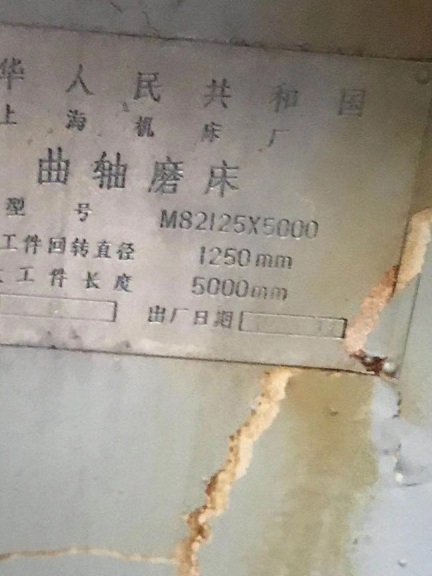 华人民共和国
上海机床厂
曲轴磨床
型号 M82125X5000
工件回转直径 1250mm
工件长度 5000mm
出厂日期